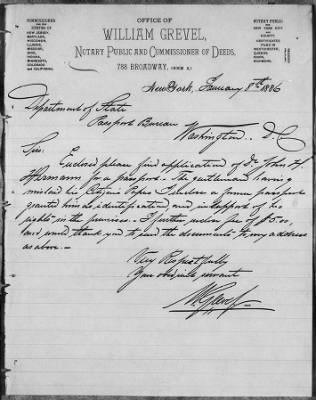 OFFICE OF
WILLIAM GREVEL,
NOTARY PUBLIC AND COMMISSIONER OF DEEDS,
788 BROADWAY,
COMMISSIONER
FOR THE
STATES OF
NEW JERSEY,
MARYLAND,
WISCONSIN,
ILLINOIS,
MISSOURI,
OHIO,
INDIANA,
MINNESOTA,
COLORADO
AND CALIFORNIA.
NOTARY PUBLIC
FOR
NEW YORK CITY
AND
COUNTY.
CERTIFICATES
FILED IN
WESTCHESTER,
QUEENS,
KINGS,
RICHMOND.
New York, 8th 1886
Department of State
Passport Bureau
Washington D.C
Sir:
Enclosed please find application of Dr John H.
for a passport. The gentleman having
mislaid his Citizen Papers I enclose a former passport
granted him as identification and in support of his
rights in the premises. I further enclose fee of $5.00,
and would thank you to send the documents to my address
as above.
Very Respectfully
Your obedient servant
W. Grevel